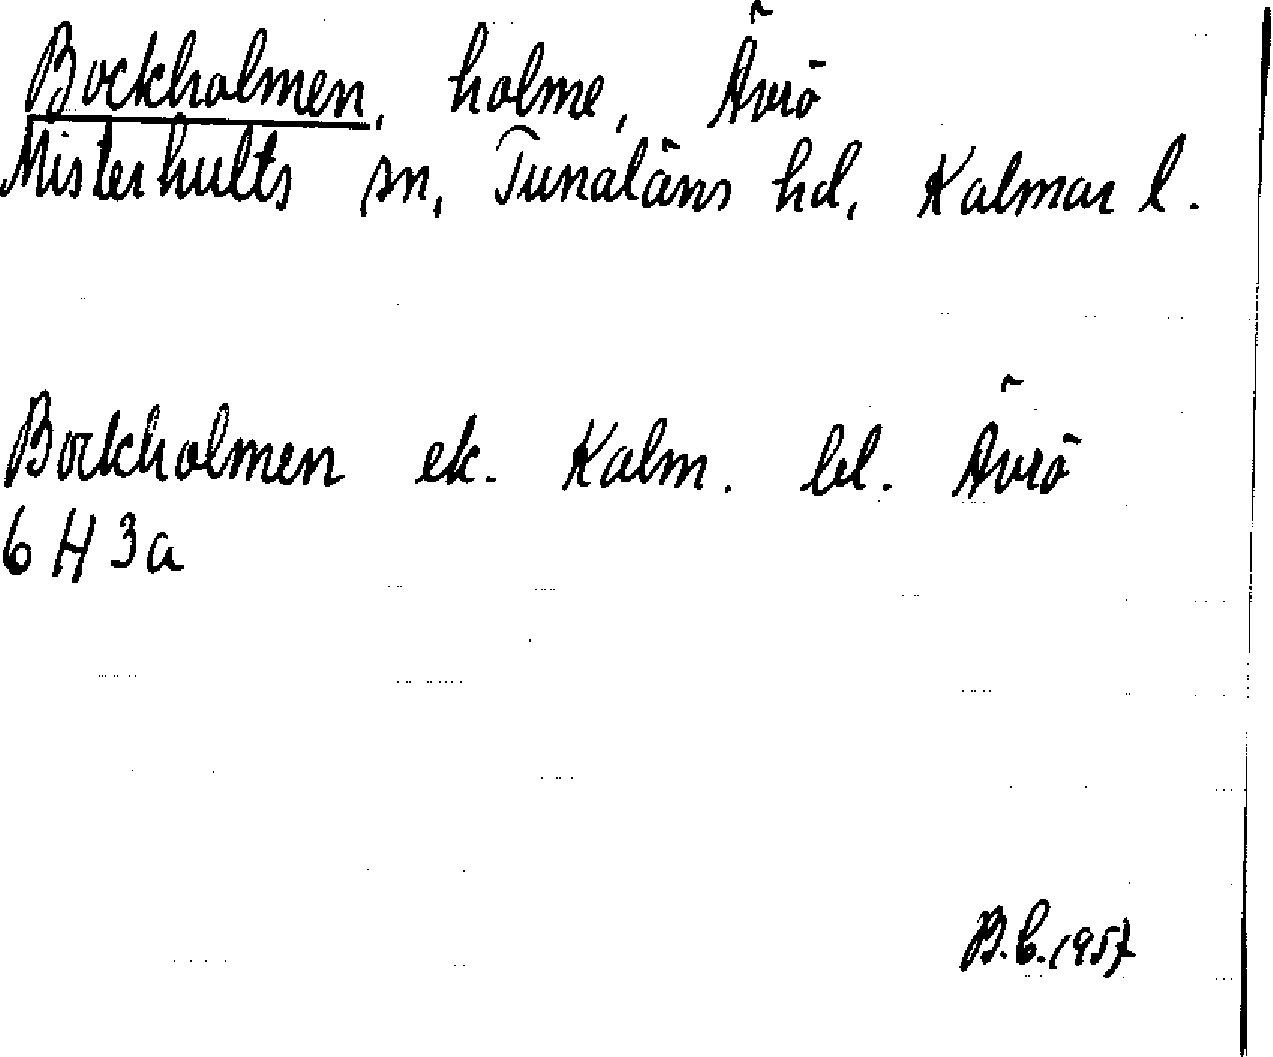 Bockholmen, holme, Ävrö
Misterhults sn, Tunaläns hd, Kalmar l.
Bockholmen ek. Kalm. bl. Ävrö
6 H 3a
1957